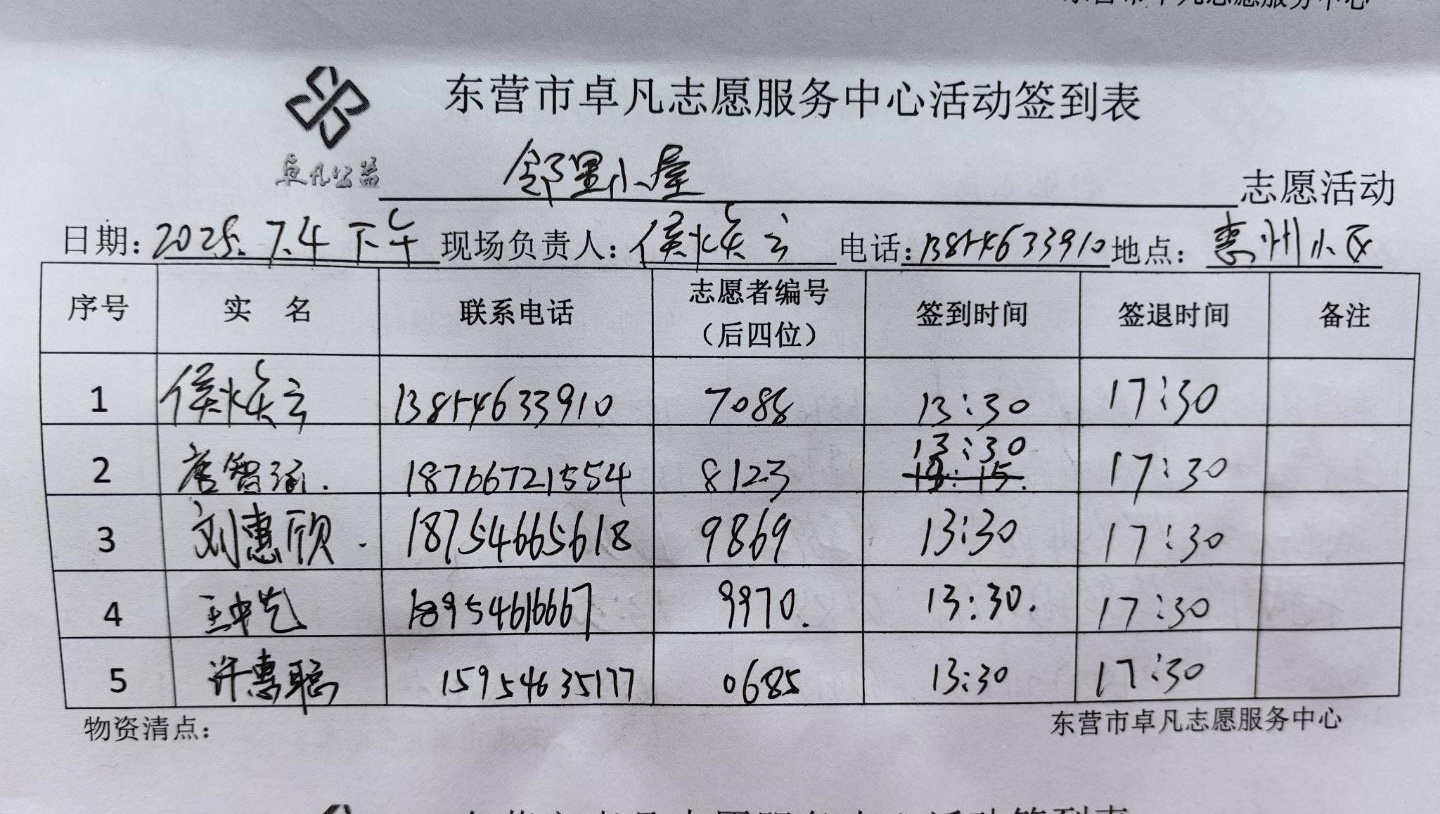 东营市卓凡志愿服务中心
东营市卓凡志愿服务中心活动签到表
卓凡公益
邻里小屋 志愿活动
日期：2025.7.4 下午 现场负责人：侯焕云 电话：13854633910 地点：惠州小区
序号 实 名 联系电话 志愿者编号（后四位） 签到时间 签退时间 备注
1 侯焕云 13854633910 7088 13:30 17:30
2 唐智涵. 18766721554 8123 13:30 13:15. 17:30
3 刘惠欣. 18754665618 9869 13:30 17:30
4 王中先 18954616667 9970. 13:30. 17:30
5 许惠聪 15954635177 0685 13:30 17:30
物资清点： 东营市卓凡志愿服务中心
东营市卓凡志愿服务中心活动签到表